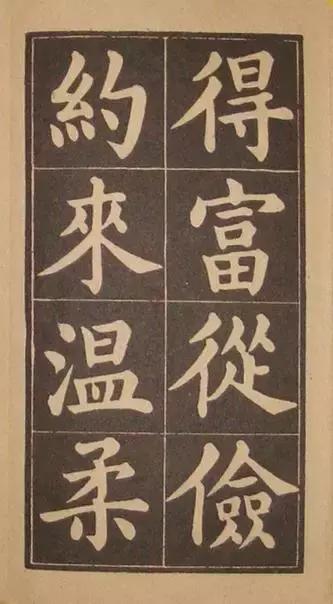 得富從儉
約來温柔